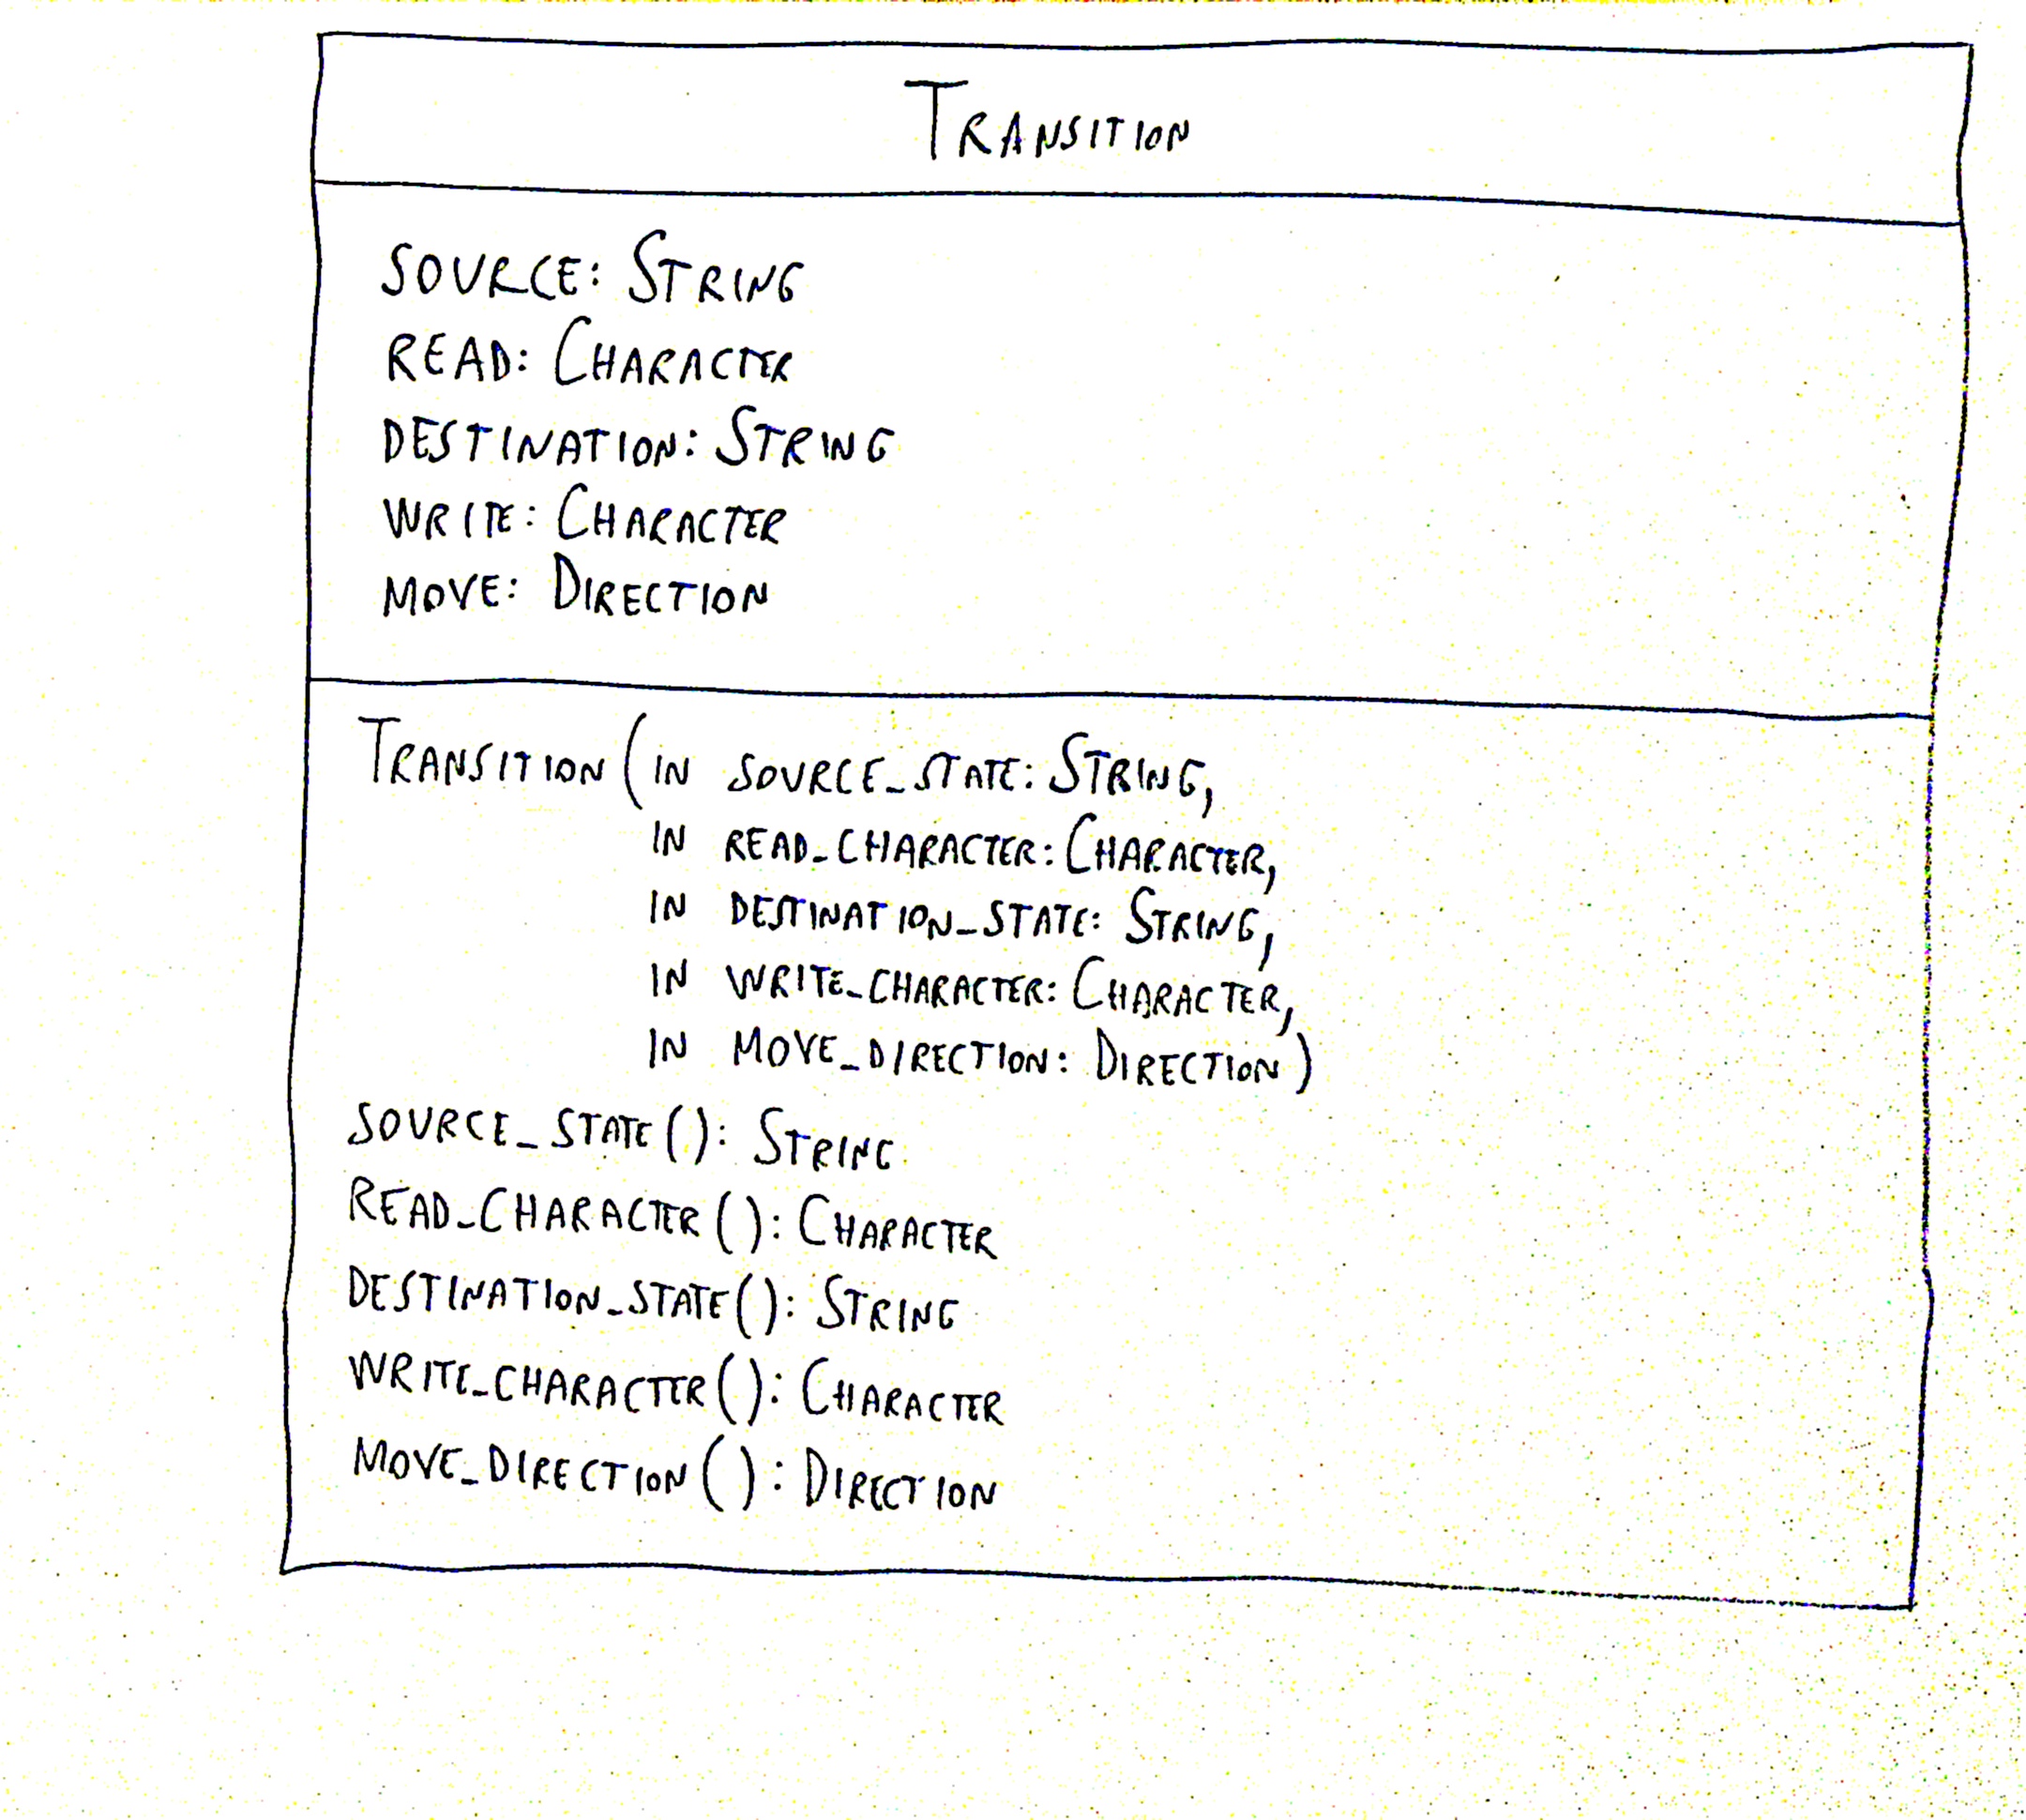 Transition
source: String
read: Character
destination: String
write: Character
move: Direction
Transition(in source_state: String,
in read_character: Character,
in destination_state: String,
in write_character: Character,
in move_direction: Direction)
source_state(): String
read_character(): Character
destination_state(): String
write_character(): Character
move_direction(): Direction